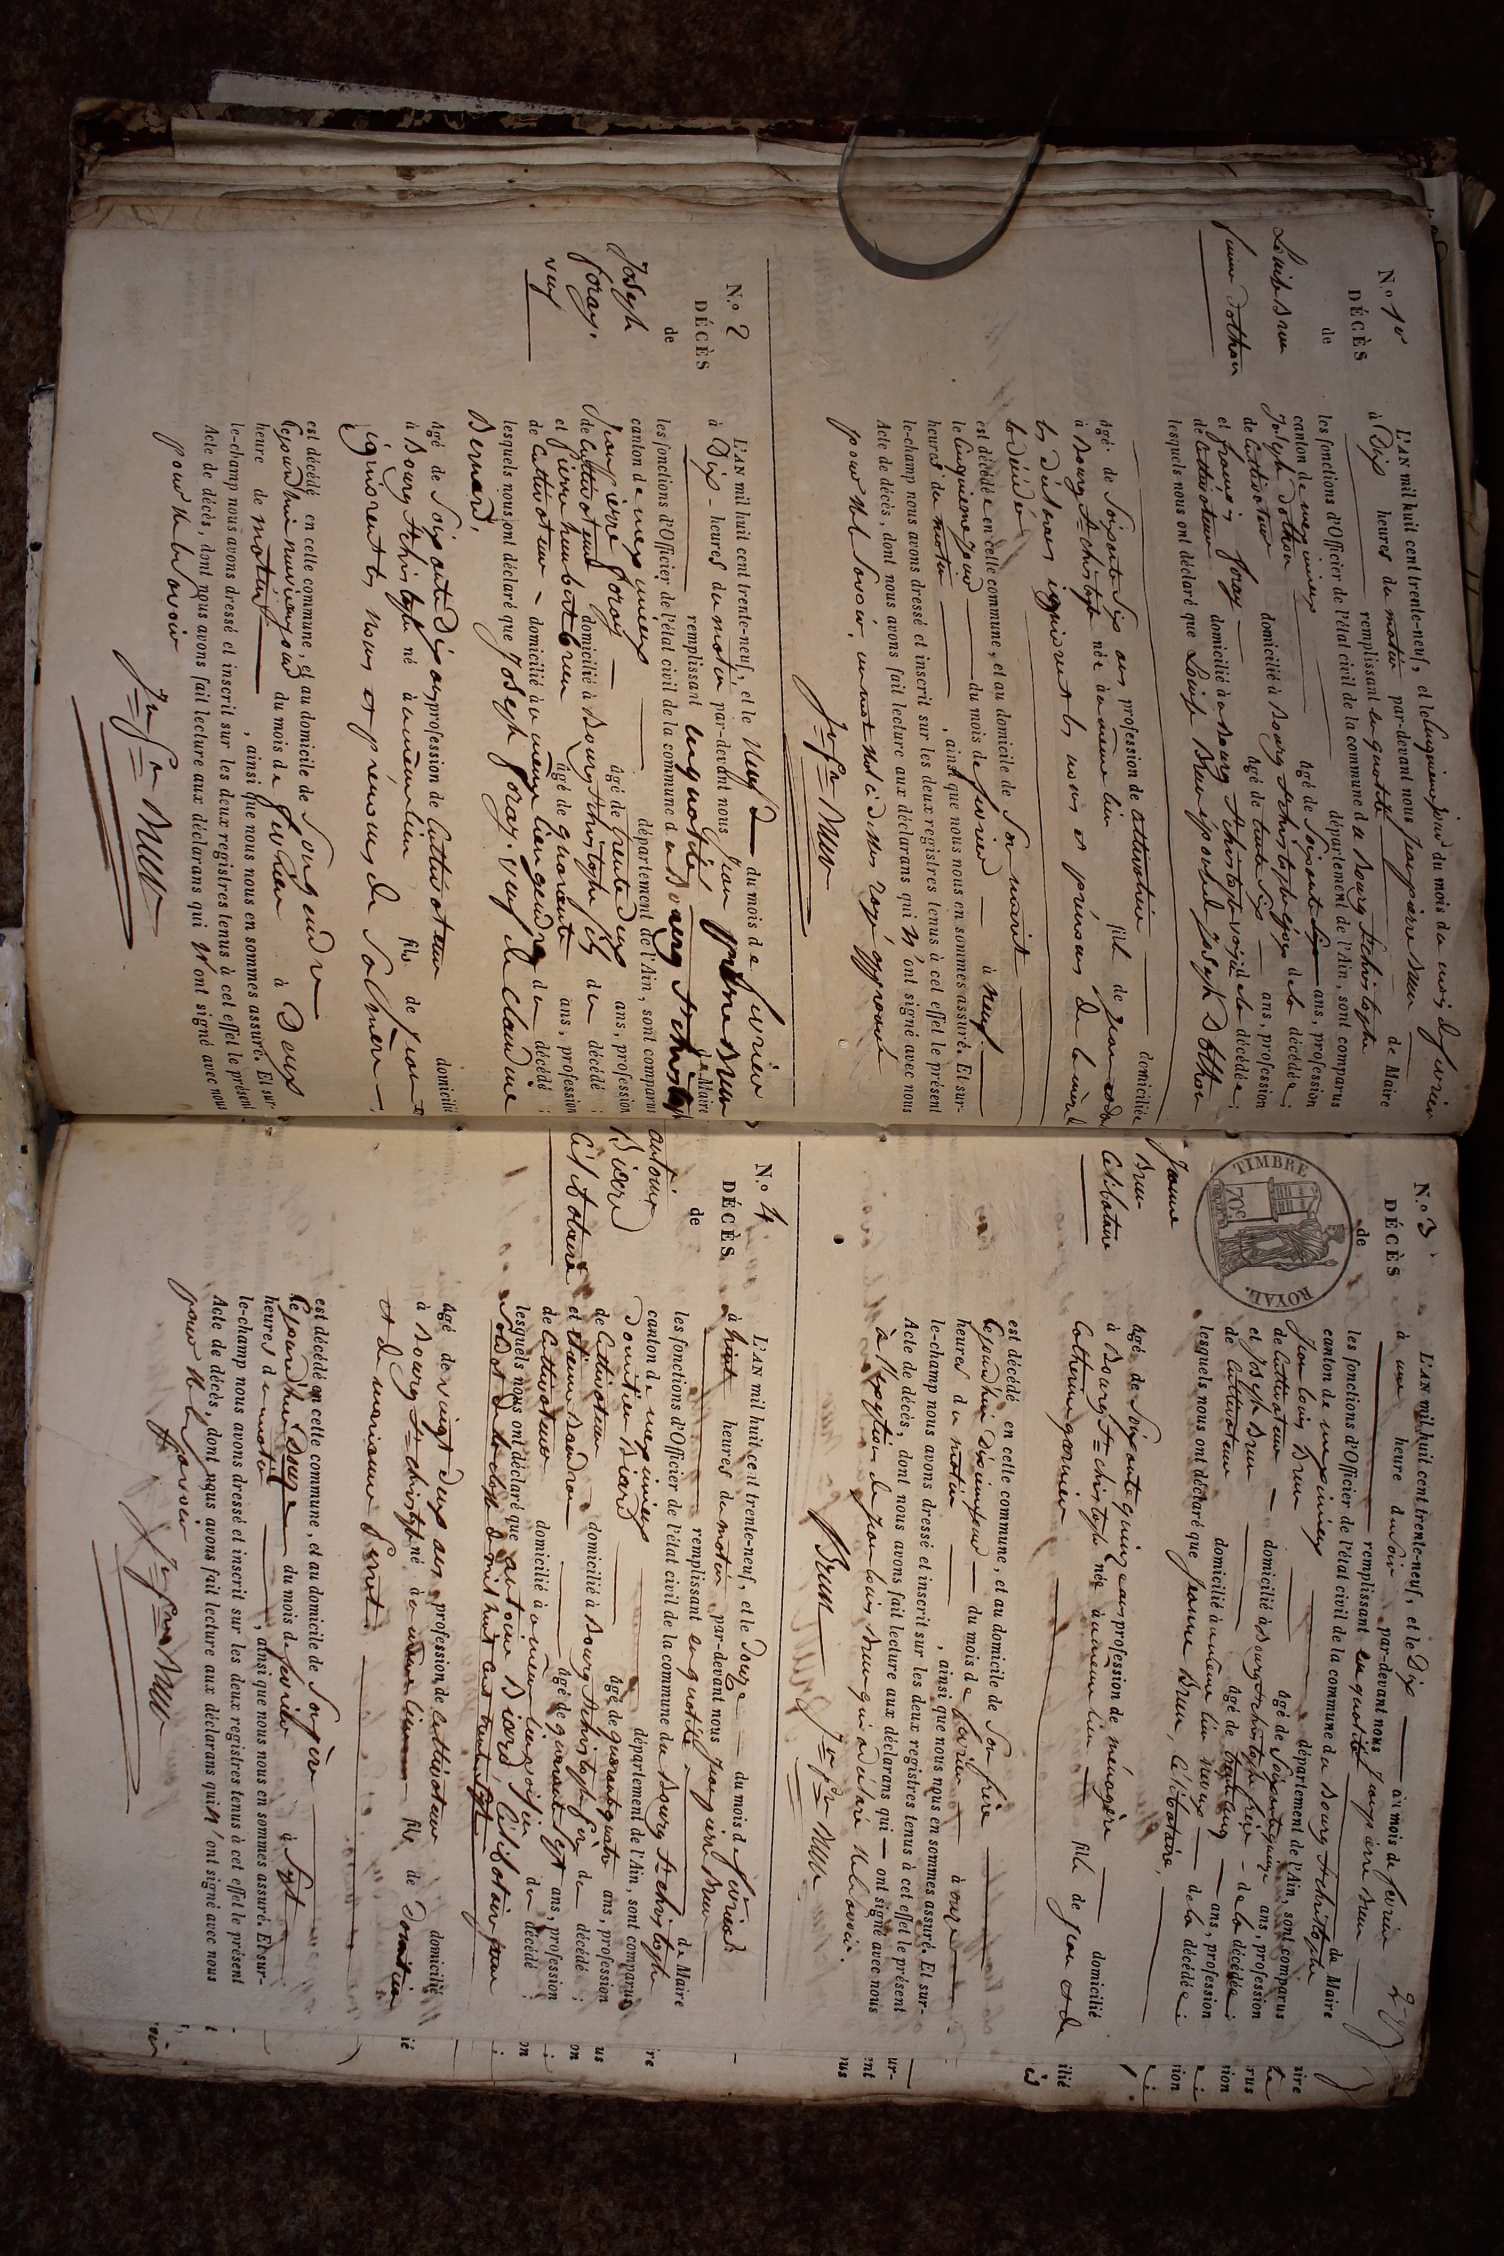 N.o 1er
DÉCÈS
de
Louise Brun
femme dothon
L'AN mil huit cent trente-neuf, et le cinquieme jour du mois de fevrier
à Dix heures du matin par-devant nous Jean pierre Brun de Maire
remplissant en qualité
les fonctions d'Officier de l'état civil de la commune de Bourg St christophe
canton de meximieux département de l'Ain, sont comparus
Joseph dothon âgé de Soixante ans, profession
de Cultivateur domicilié à Bourg St christophe époux de la décédée ;
et françois foray âgé de trente six ans, profession
de Cultivateur domicilié à Bourg St christophe voisin de la décédée ;
lesquels nous ont déclaré que Louise Brun épouse de joseph Dothon
âgé de Soixante Six ans, profession de cultivatrice domiciliée
à Bourg St christophe née à même lieu fille de jean
les déclarans ignorent les noms et prénoms de la mère de
la décédée
est décédée en celle commune, et au domicile de Son marit
le Cinquieme jour du mois de fevrier à neuf
heures du matin , ainsi que nous nous en sommes assuré. Et sur-
le-champ nous avons dressé et inscrit sur les deux registres tenus à cet effet le présent
Acte de décès, dont nous avons fait lecture aux déclarans qui n'ont signé avec nous
pour ne le savoir un mot rayé approuvé
Jn Pre Brun
N.o 2
DÉCÈS
de
Joseph
foray.
veuf
L'AN mil huit cent trente-neuf, et le Neuf du mois de fevrier
à Dix heures du matin par-devant nous Jean pierre Brun de Maire
remplissant en qualité
les fonctions d'Officier de l'état civil de la commune de Bourg St christophe
canton de meximieux département de l'Ain, sont comparus
Jean pierre foray âgé de trente deux ans, profession
de Cultivateur domicilié à Bourg St christophe fils du décédé ;
et pierre humbert Brun âgé de quarante ans, profession
de Cultivateur domicilié à u même lieu gendre du décédé ;
lesquels nous ont déclaré que Joseph foray. veuf de claudine
Bernard,
âgé de Soixante Dix ans, profession de Cultivateur domicilié
à Bourg St christophe né à u même lieu fils de jean et
ignorent les noms et prénoms de Sa mère
est décédé en celle commune, et au domicile de Son gendre
le jourdhui neuvieme jour du mois de fevrier à Deux
heure de matin , ainsi que nous nous en sommes assuré. Et sur-
le-champ nous avons dressé et inscrit sur les deux registres tenus à cet effet le présent
Acte de décès, dont nous avons fait lecture aux déclarans qui n'ont signé avec nous
pour ne le savoir
Jn Pre Brun
TIMBRE
70c
ROYAL.
N.o 3
DÉCÈS
de
Jeanne
Brun.
Célibataire
L'AN mil huit cent trente-neuf, et le Dix du mois de fevrier
à une heure du Soir par-devant nous Jean pierre Brun de Maire
remplissant en qualité
les fonctions d'Officier de l'état civil de la commune de Bourg St christophe
canton de meximieux département de l'Ain, sont comparus
Jean louis Brun âgé de Soixante quinze ans, profession
de Cultivateur domicilié à Bourg St christophe frère de la décédée ;
et joseph Brun âgé de trente cinq ans, profession
de Cultivateur domicilié à u même lieu neveux de la décédée ;
lesquels nous ont déclaré que Jeanne Brun, Célibataire,
âgé de Soixante quinze ans, profession de ménagère domicilié
à Bourg St christophe née à u même lieu fille de Jean et de
Catherine garnier
est décédé en celle commune, et au domicile de Son frère
le jourd'hui dixieme jour du mois de fevrier à onze
heures du matin , ainsi que nous nous en sommes assuré. Et sur-
le-champ nous avons dressé et inscrit sur les deux registres tenus à cet effet le présent
Acte de décès, dont nous avons fait lecture aux déclarans qui ont signé avec nous
à l'exeption de Jean louis Brun qui a déclaré ne le savoir.
Brun Jn Pre Brun
N.o 4
DÉCÈS
de
antoine
Biard
Célibataire
L'AN mil huit cent trente-neuf, et le Douze du mois de fevrier
à huit heures du matin par-devant nous Jean pierre Brun de Maire
remplissant en qualité
les fonctions d'Officier de l'état civil de la commune de Bourg St christophe
canton de meximieux département de l'Ain, sont comparus
Domitien Biard âgé de quarante quatre ans, profession
de Cultivateur domicilié à Bourg St christophe père du décédé ;
et étienne Baudron âgé de quarante Sept ans, profession
de Cultivateur domicilié à u même lieu voisin du décédé ;
lesquels nous ont déclaré que antoine Biard Célibataire jeune
Soldat de la classe de mil huit cent trente Sept
âgé de vingt deux ans, profession de Cultivateur domicilié
à Bourg St christophe né à u même lieu fils de Domitien
et de marianne Perret
est décédé en celle commune, et au domicile de Son père
le jourd'hui Douze du mois de fevrier à Sept
heures du matin , ainsi que nous nous en sommes assuré. Et sur-
le-champ nous avons dressé et inscrit sur les deux registres tenus à cet effet le présent
Acte de décès, dont nous avons fait lecture aux déclarans qui n'ont signé avec nous
pour ne le savoir
Jn Pre Brun